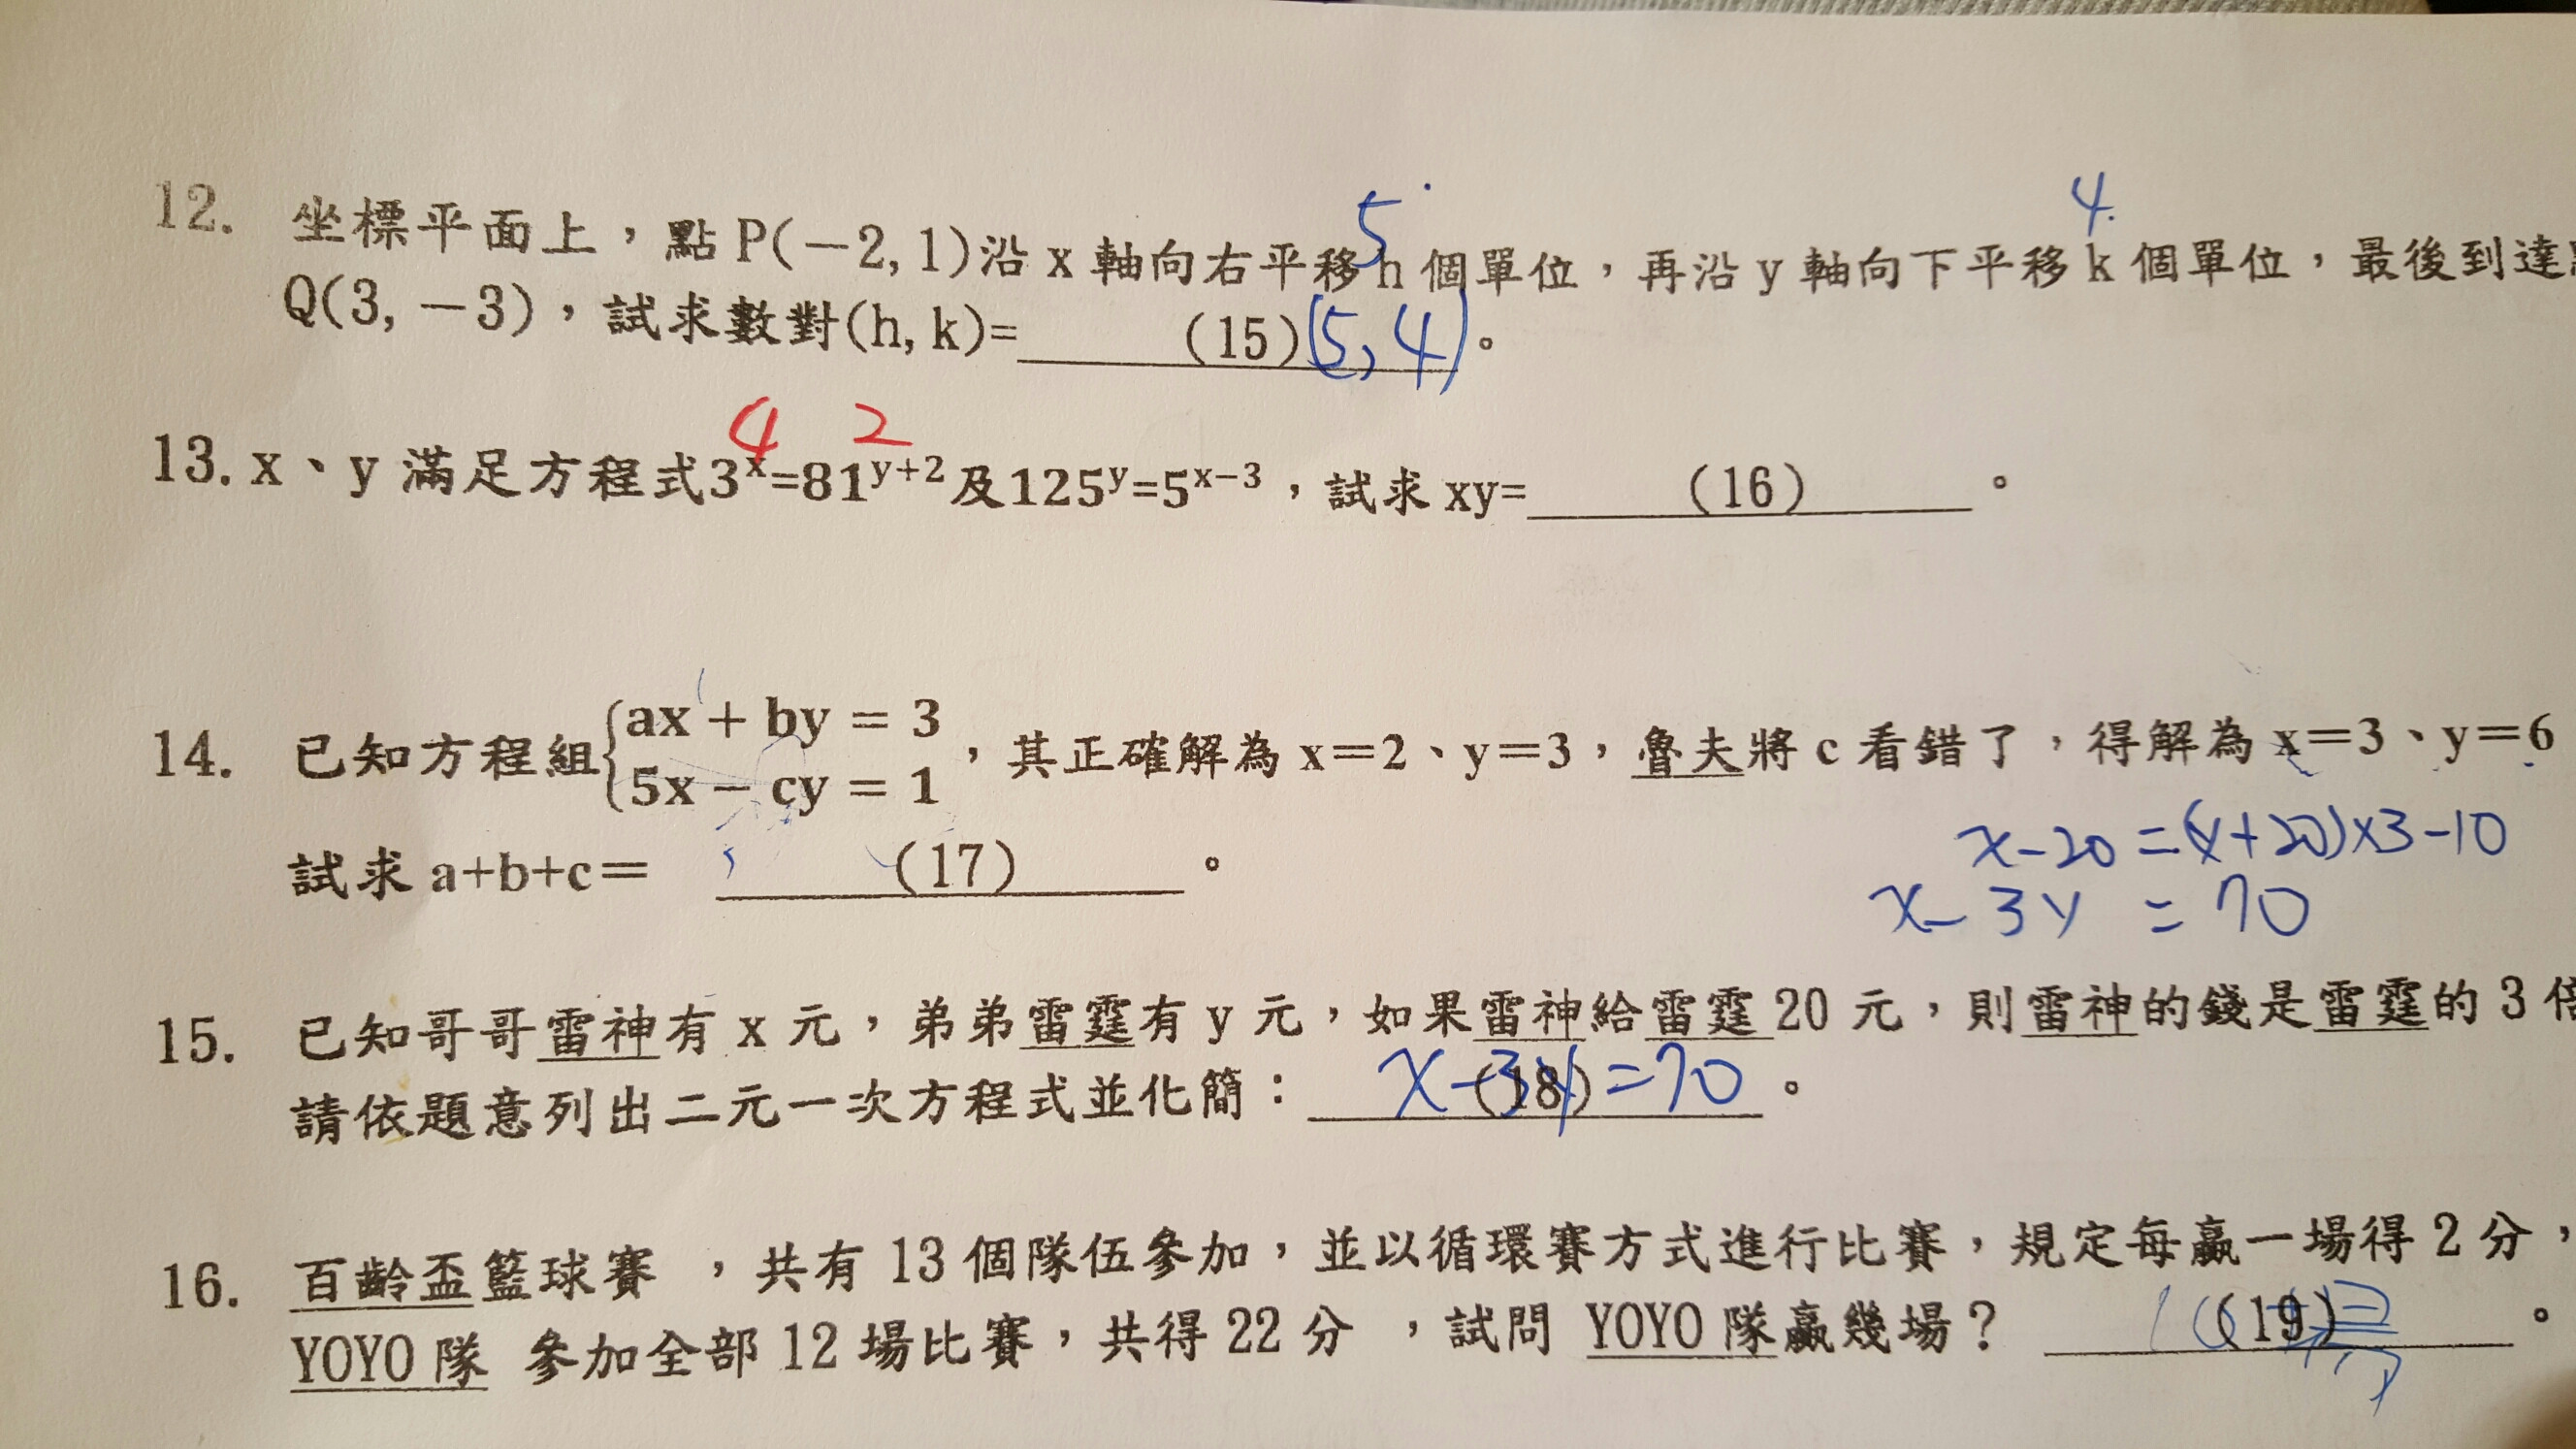 5 4
12. 坐標平面上，點P(－2,1)沿 x 軸向右平移h個單位，再沿 y 軸向下平移 k 個單位，最後到達
Q(3,－3)，試求數對(h,k)= (15) (5,4)。
4 2
13. x、y 滿足方程式3^x=81^{y+2}及125^y=5^{x-3}，試求 xy= (16) 。
14. 已知方程組{ax + by = 3
5x − cy = 1，其正確解為 x＝2、y＝3，魯夫將 c 看錯了，得解為 x＝3、y＝6
x-20=(y+20)x3-10
試求 a+b+c＝ (17) 。
x-3y=70
15. 已知哥哥雷神有 x 元，弟弟雷霆有 y 元，如果雷神給雷霆 20 元，則雷神的錢是雷霆的 3
請依題意列出二元一次方程式並化簡： (18) x-3y=70 。
16. 百齡盃籃球賽 ，共有 13 個隊伍參加，並以循環賽方式進行比賽，規定每贏一場得 2 分，
YOYO 隊 參加全部 12 場比賽，共得 22 分 ，試問 YOYO 隊贏幾場？ (19) 10場 。